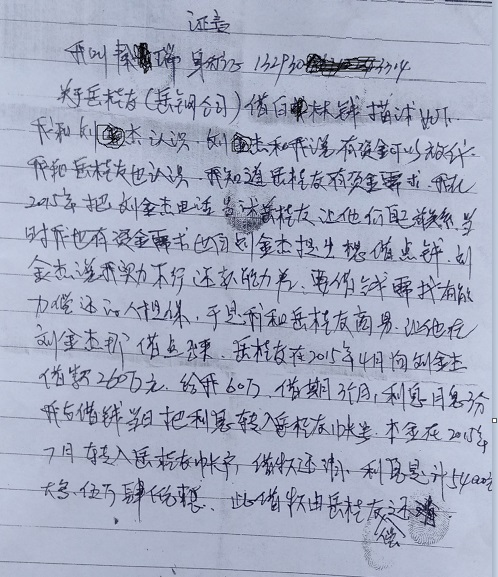 证言
我叫秦 瑞 身份证 132930 3314
关于岳桂友(岳钢公司)借白 林钱描述如下
我和刘金杰认识,刘金杰和我说有资金可以放贷.
我和岳桂友也认识,我知道岳桂友有资金需求.我在
2015年把刘金杰电话告诉岳桂友让他们自己联系.当
时我也有资金需求也向刘金杰提出想借点钱.刘
金杰说我实力不行还款能力差,要借钱需找有能
力偿还的人担保,于是我和岳桂友商易,让他在
刘金杰那借点出来.岳桂友在2015年4月向刘金杰
借款260万元.给我60万.借期3个月,利息月息3分
我与借钱当日把利息转入岳桂友帐号.本金在2015年
7月转入岳桂友帐户,借款还清.利息是计54000元
大写:伍万肆仟整.此借款由岳桂友还
偿